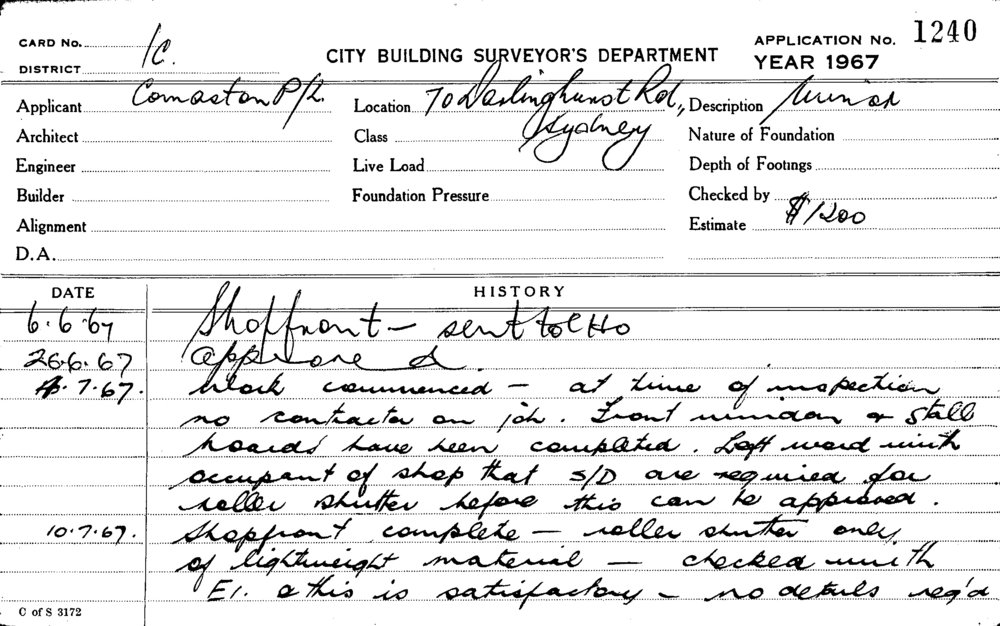 CARD No. 1C.
DISTRICT
CITY BUILDING SURVEYOR'S DEPARTMENT
APPLICATION No. 1240
YEAR 1967
Applicant Comaston P/L. Location 70 Darlinghurst Rd., Sydney Description Minor
Architect Class Nature of Foundation
Engineer Live Load Depth of Footings
Builder Foundation Pressure Checked by
Alignment Estimate $1200
D.A.
DATE HISTORY
6.6.67 Shopfront - sent to CHO
26.6.67 approved.
4.7.67. Work commenced - at time of inspection
no contractor on job. Front window & stall
boards have been completed. Left word with
occupant of shop that S/D are required for
roller shutter before this can be approved.
10.7.67. Shopfront complete - roller shutter only
of lightweight material - checked with
E1. & this is satisfactory - no details req'd
C of S 3172